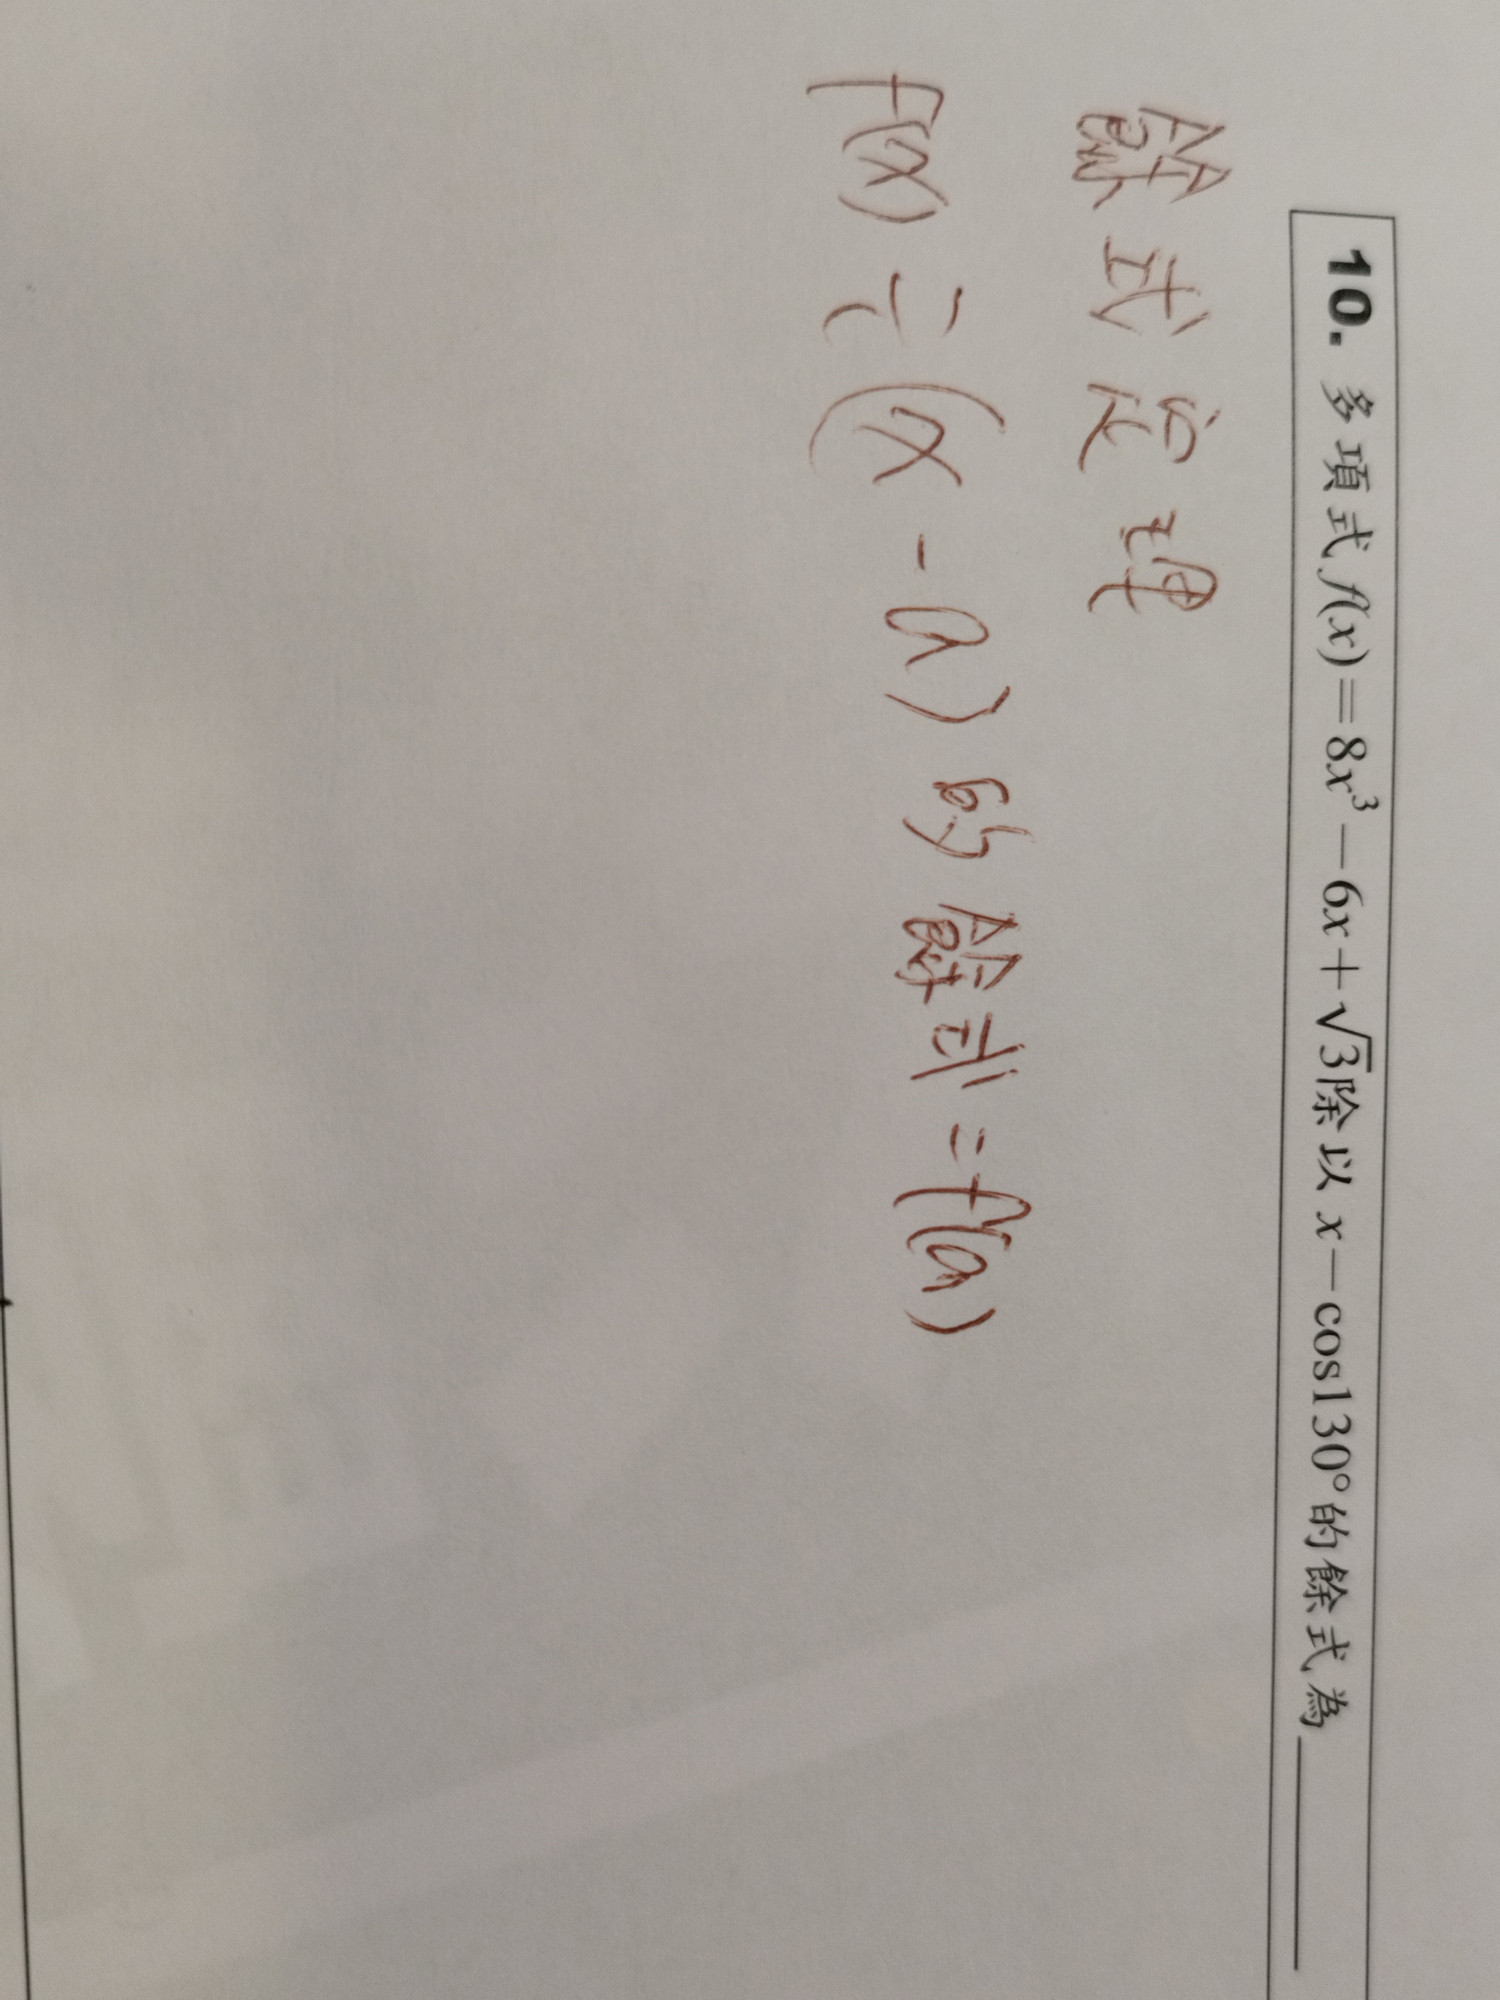 10. 多項式 f(x)=8x³-6x+√3除以 x-cos130°的餘式為____
餘式定理
f(x) ÷ (x-a) 的餘式=f(a)